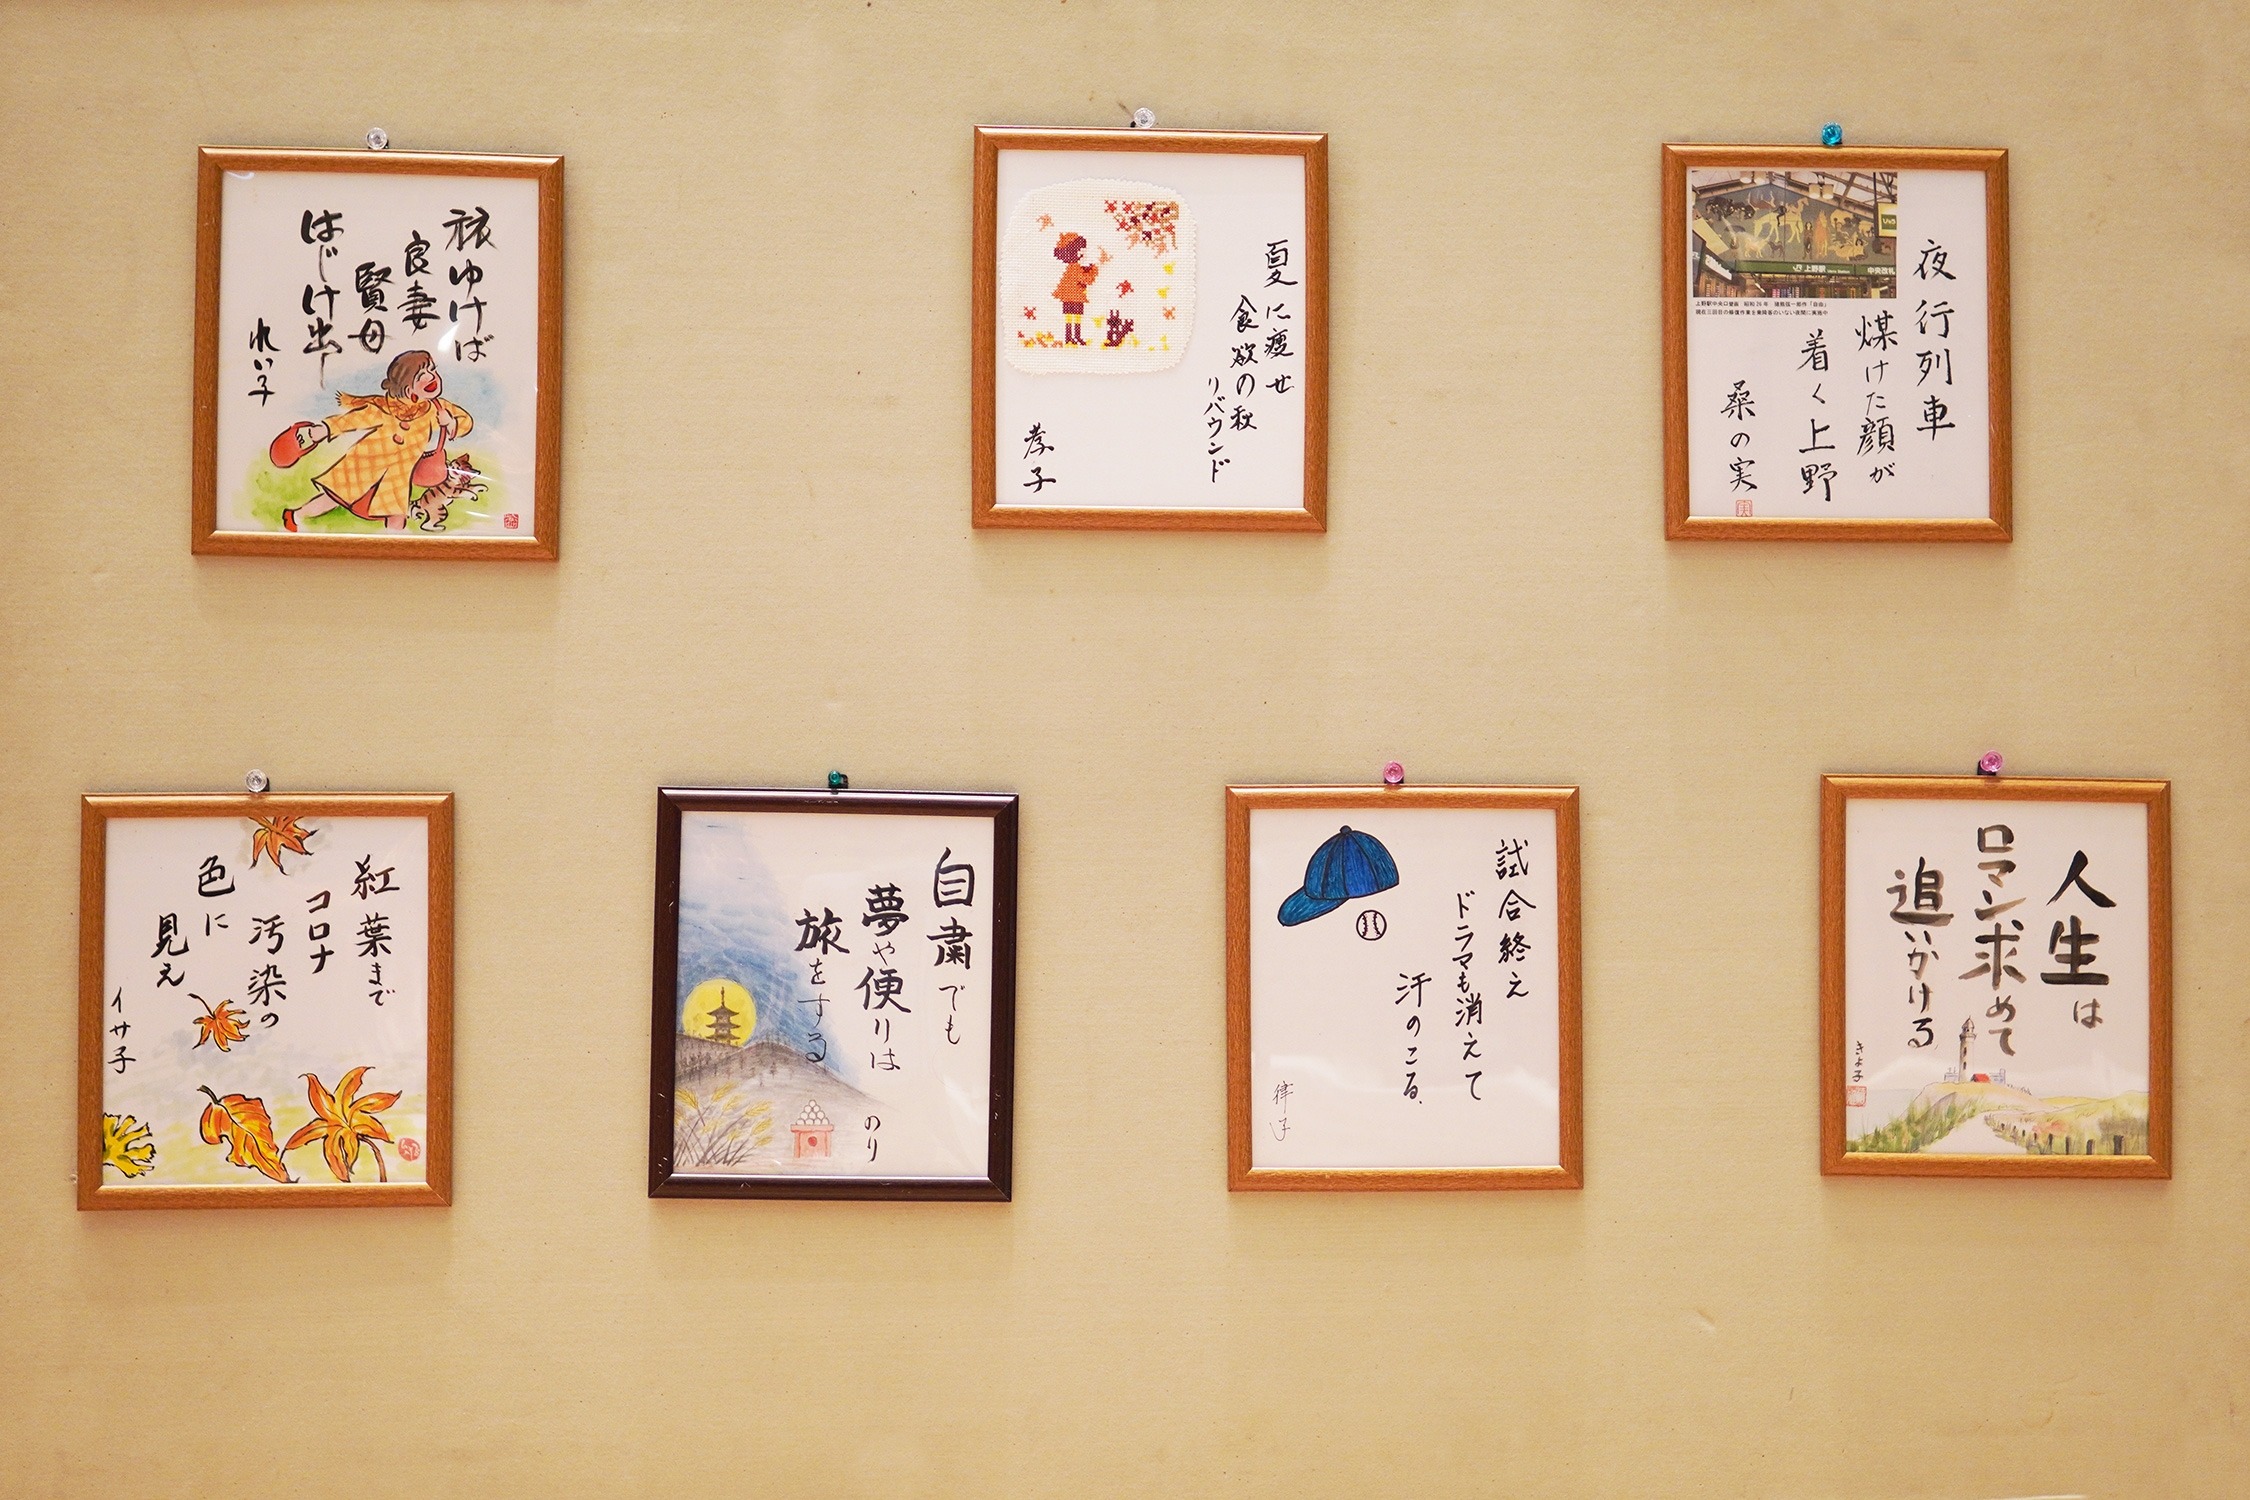 旅ゆけば
良妻
賢母
はじけ出し
れい子
夏に痩せ
食欲の秋
リバウンド
孝子
JR上野駅
中央改札
上野駅中央口壁画 昭和26年 猪熊弦一郎作「自由」
夜行列車
煤けた顔が
着く上野
桑の実
紅葉まで
コロナ
汚染の
色に
見え
イサ子
自粛でも
夢や便りは
旅をする
のり
試合終え
ドラマも消えて
汗のこる.
律子
人生は
ロマン求めて
追いかける
きよ子